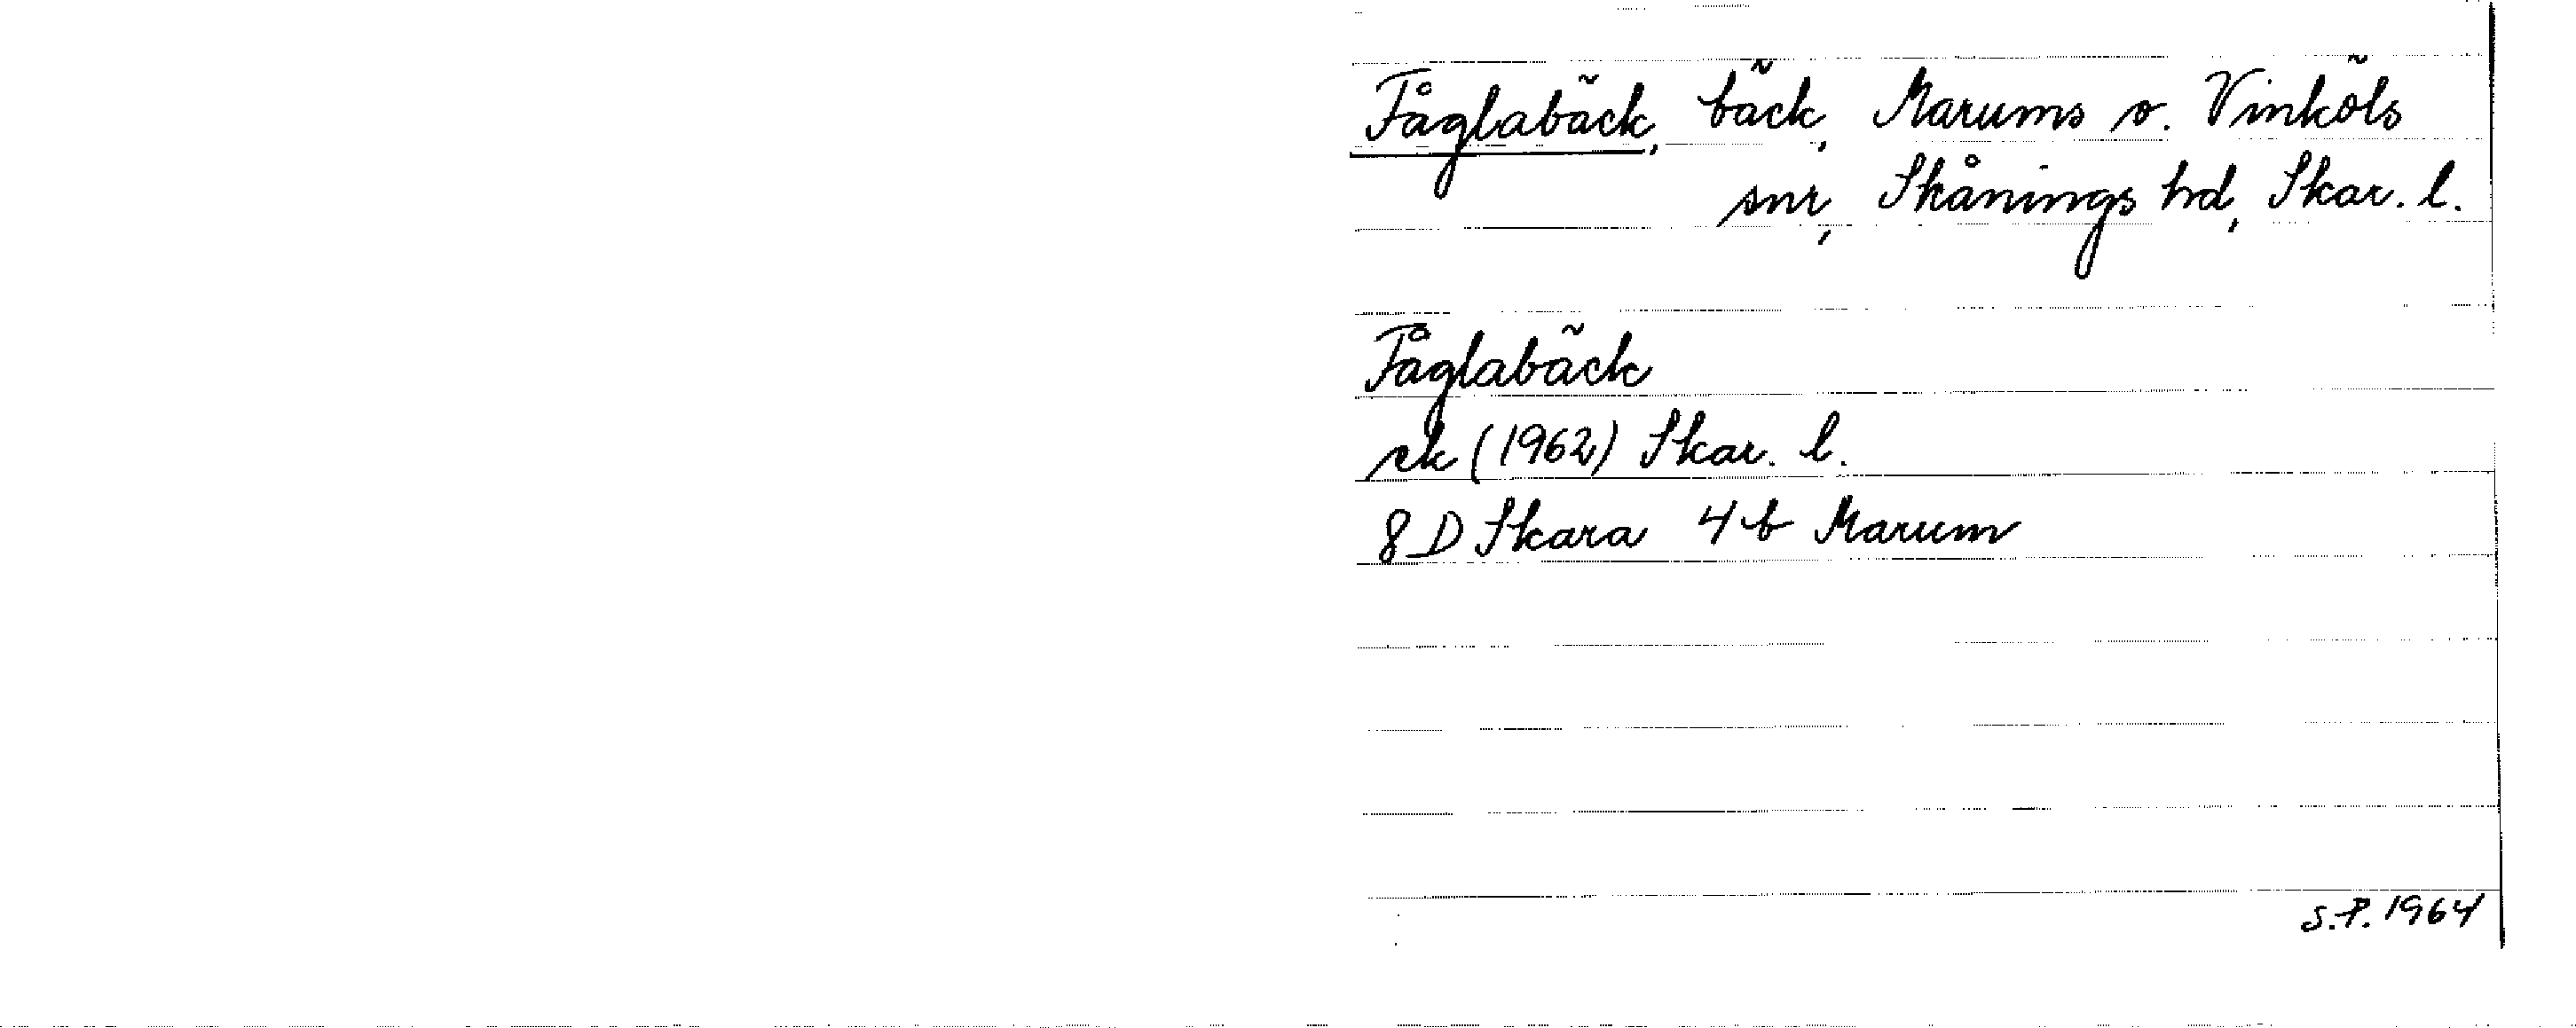 Fåglabäck, bäck, Marums o. Vinköls
snr, Skånings hd, Skar. l.
Fåglabäck
ek (1962) Skar. l.
8 D Skara 4 b Marum
S.P. 1964